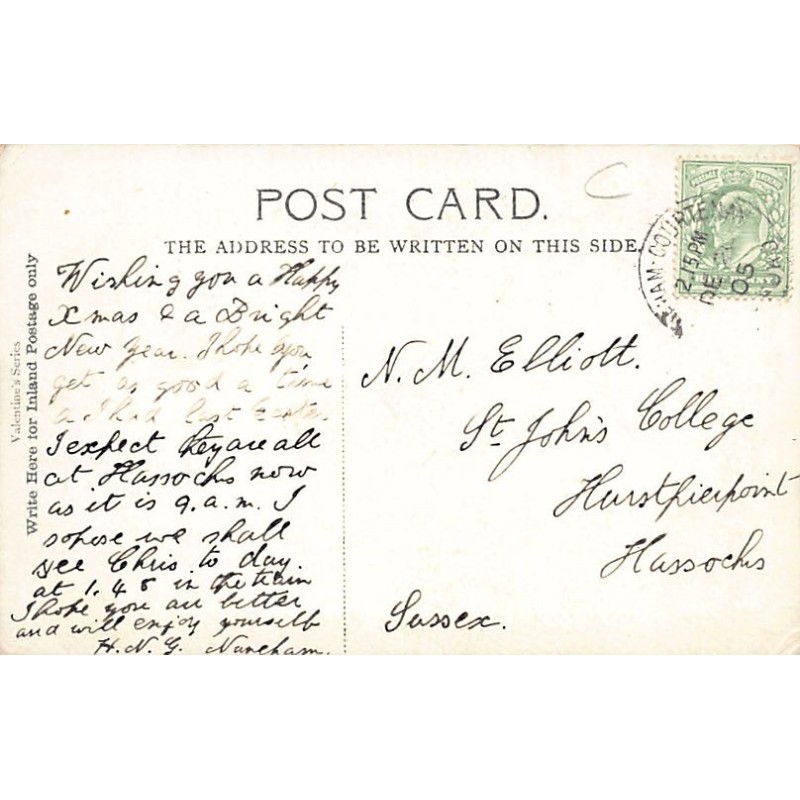 POST CARD.
THE ADDRESS TO BE WRITTEN ON THIS SIDE.
Valentine's Series
Write Here for Inland Postage only
Wishing you a Happy
Xmas & a Bright
New Year. I hope you
get as good a time
as I had last Easter
I expect they are all
at Hassocks now
as it is 9.a.m. I
sopose we shall
see Chris to day.
at 1.45 in the train
I hope you are better
and will enjoy yourself
H.N.G. Nuneham.
N. M. Elliott.
St John's College
Hurstpierpoint
Hassocks
Sussex.
EHAM-COURTENAY
2.15PM
DE
05